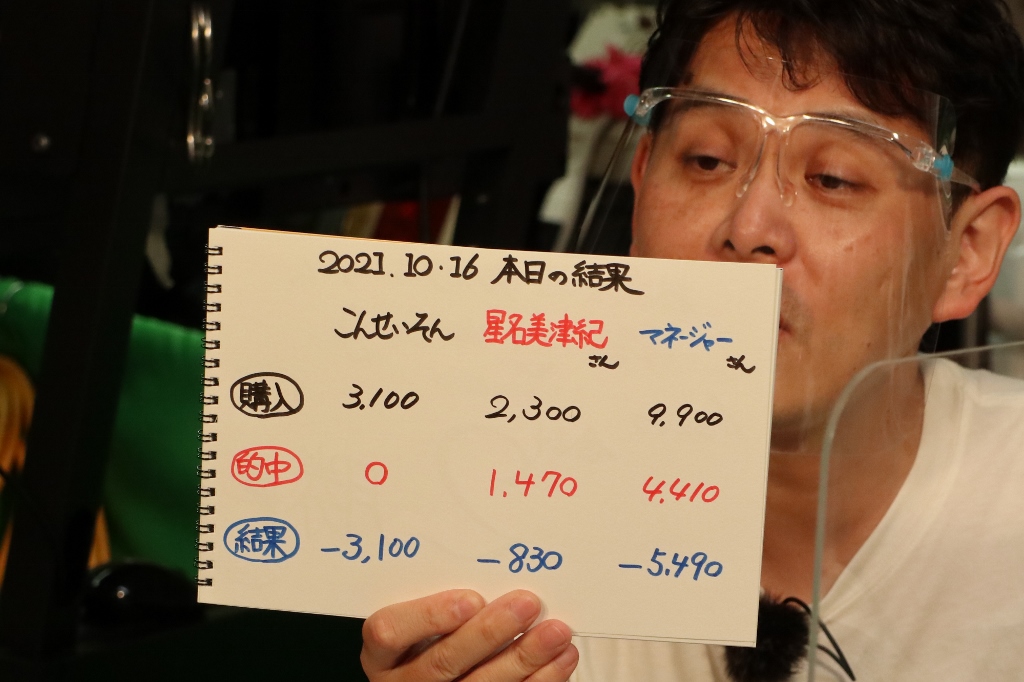 2021.10.16 本日の結果
こんせいそん 星名美津紀さん マネージャーさん
購入 3,100 2,300 9.900
的中 0 1.470 4.410
結果 -3,100 -830 -5.490